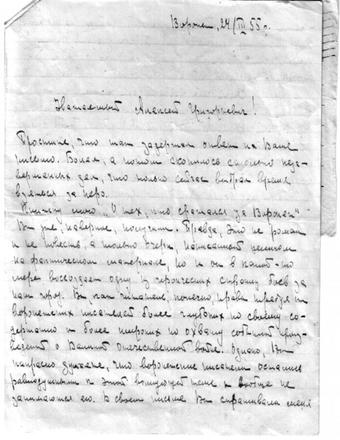 Воронеж, 24/III 55 г.
Уважаемый Алексей Григорьевич!
Простите, что так задержал ответ на Ваше
письмо. Болел, а потом скопилось столько неза-
вершенных дел, что только сейчас выбрал время
взяться за перо.
Книжку мою "О тех, кто сражался за Воронеж"
Вы уже, наверное, получили. Правда, это не роман
и не повесть, а только очерк, написанный целиком
на фактическом материале, но и он в какой-то
мере воссоздает одну из героических страниц боев за
наш город. Вы как читатель, конечно, правы требуя от
воронежских писателей более глубоких по своему со-
держанию и более широких по охвату событий
о Великой Отечественной войне. Однако, Вы
напрасно думаете, что воронежские писатели остались
равнодушными к этой волнующей теме и вообще не
занимаются ею. В своем письме Вы спрашивали меня